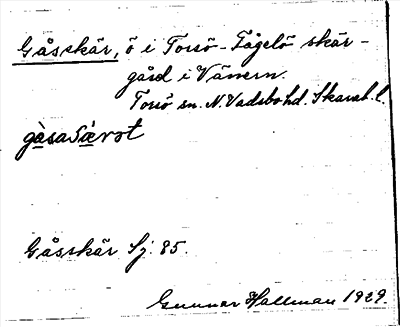 Gåsskär, ö i Torsö-Fågelö skär-
gård i Vänern.
Torsö sn. N. Vadsbo hd. Skarab. l.
gåsaSærət
Gåsskär Sj. 85.
Gunnar Hallman 1929.